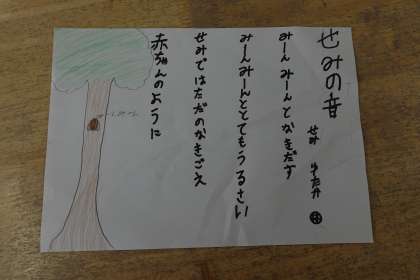 せみの音
せみ ゆたか
みーんみーんとなきだす
みーんみーんととてもうるさい
せみではただのなきごえ
赤ちゃんのように